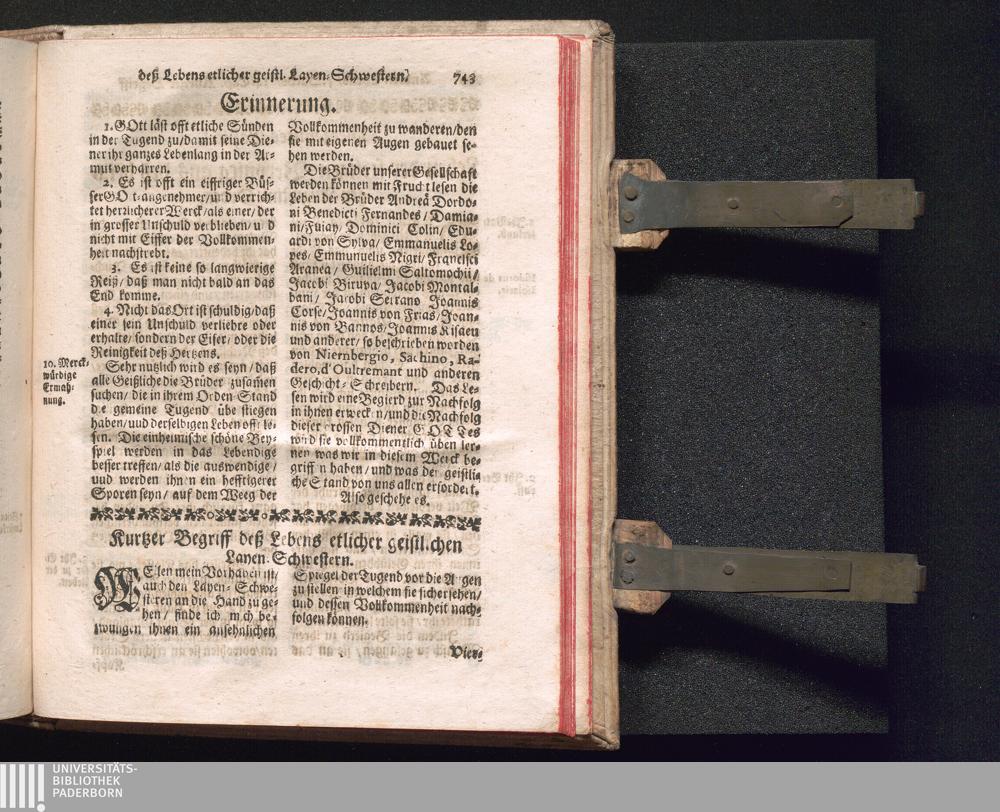 deß Lebens etlicher geistl. Layen-Schwestern. 743
Erinnerung.
1. GOtt läst offt etliche Sünden
in der Tugend zu/damit seine Die-
ner ihr ganzes Lebenlang in der Ar-
mut verharren.
2. Es ist offt ein eiffriger Büs-
ser GOtt angenehmer/und verrich-
tet herzlicherer Werck/als einer/der
in grosser Unschuld verblieben/und
nicht mit Eiffer der Vollkommen-
heit nachstrebt.
3. Es ist keine so langwierige
Reiß/ daß man nicht bald an das
End komme.
4. Nicht das Ort ist schuldig/daß
einer sein Unschuld verliehre oder
erhalte/sondern der Eifer/oder die
Reinigkeit deß Hertzens.
10. Merck-
würdige
Ermah-
nung.
Sehr nutzlich wird es seyn/daß
alle Geistliche die Brüder zusamen
suchen/die in ihrem Orden-Stand
die gemeine Tugend überstiegen
haben/uud derselbigen Leben offt le-
sen. Die einheimische schöne Bey-
spiel werden in das Lebendige
besser treffen/als die auswendige/
uud werden ihnen ein hefftigerer
Sporen seyn/ auf dem Weeg der
Vollkommenheit zu wanderen/den
sie mit eigenen Augen gebauet se-
hen werden.
Die Brüder unserer Gesellschaft
werden können mit Frucht lesen die
Leben der Brüder Andreä Dordo-
ni Benedicti Fernandes/ Damia-
ni/Fuiay/ Dominici Colin/ Edu-
ardi von Sylva/ Emmanuelis Lo-
pes/ Emmanuelis Nigri/ Francisci
Aranea/ Guilielmi Saltomochii/
Jacobi Biruva/ Jacobi Montal-
bani/ Jacobi Serrano Joannis
Corse/Joannis von Frias/Joan-
nis von Bannos/Joannis Kisaeu
und anderer/ so beschrieben worden
von Niernbergio, Sachino, Ra-
dero, d'Oultremant und anderen
Geschicht-Schreibern. Das Le-
sen wird eine Begierd zur Nachfolg
in ihnen erwecken/und die Nachfolg
dieser grossen Diener GOTTes
wird sie vollkommentlich üben ler-
nen was wir in diesem Werck be-
griffen haben/und was der geistli-
che Stand von uns allen erfordert.
Also geschehe es.
Kurtzer Begriff deß Lebens etlicher geistlichen
Layen-Schwestern.
WEilen mein Vorhaben ist/
auch den Layen-Schwe-
steren an die Hand zu ge-
hen/ finde ich mich be-
zwungen ihnen ein ansehnlichen
Spiegel der Tugend vor die Augen
zu stellen/in welchem sie sich ersehen/
und dessen Vollkommenheit nach-
folgen können.
Vier-
UNIVERSITÄTS-
BIBLIOTHEK
PADERBORN